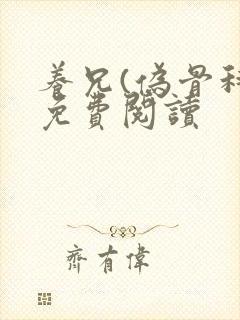 養兄(偽骨科
免費閱讀
齊有偉